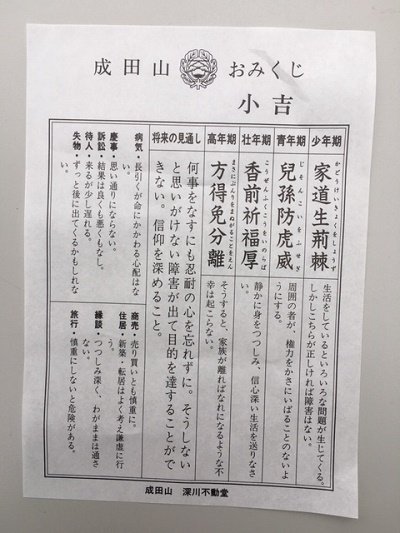 成田山 おみくじ
小吉
少年期
家道生荆棘
かどうけいきょくをしょうず
生活をしているといろいろな問題が生じてくる。
しかしこちらが正しければ障害はない。
青年期
兒孫防虎威
じそんこいをふせぎ
周囲の者が、権力をかさにいばることのないよ
うにする。
壮年期
香前祈福厚
こうぜんふくこうをいのらば
静かに身をつつしみ、信心深い生活を送りなさ
い。
高年期
方得免分離
まさにぶんりをまぬがるることをえん
そうすると、家族が離ればなれになるような不
幸は起こらない。
将来の見通し
何事をなすにも忍耐の心を忘れずに。そうしない
と思いがけない障害が出て目的を達することがで
きない。信仰を深めること。
病気・長引くが命にかかわる心配はな
い。
慶事・思い通りにならない。
訴訟・結果は良くも悪くもなし。
待人・来るが少し遅れる。
失物・ずっと後に出てくるかもしれな
い。
商売・売り買いとも慎重に。
住居・新築・転居はよく考え謙虚に行
う。
縁談・つつしみ深く、わがままは通さ
ない。
旅行・慎重にしないと危険がある。
成田山 深川不動堂